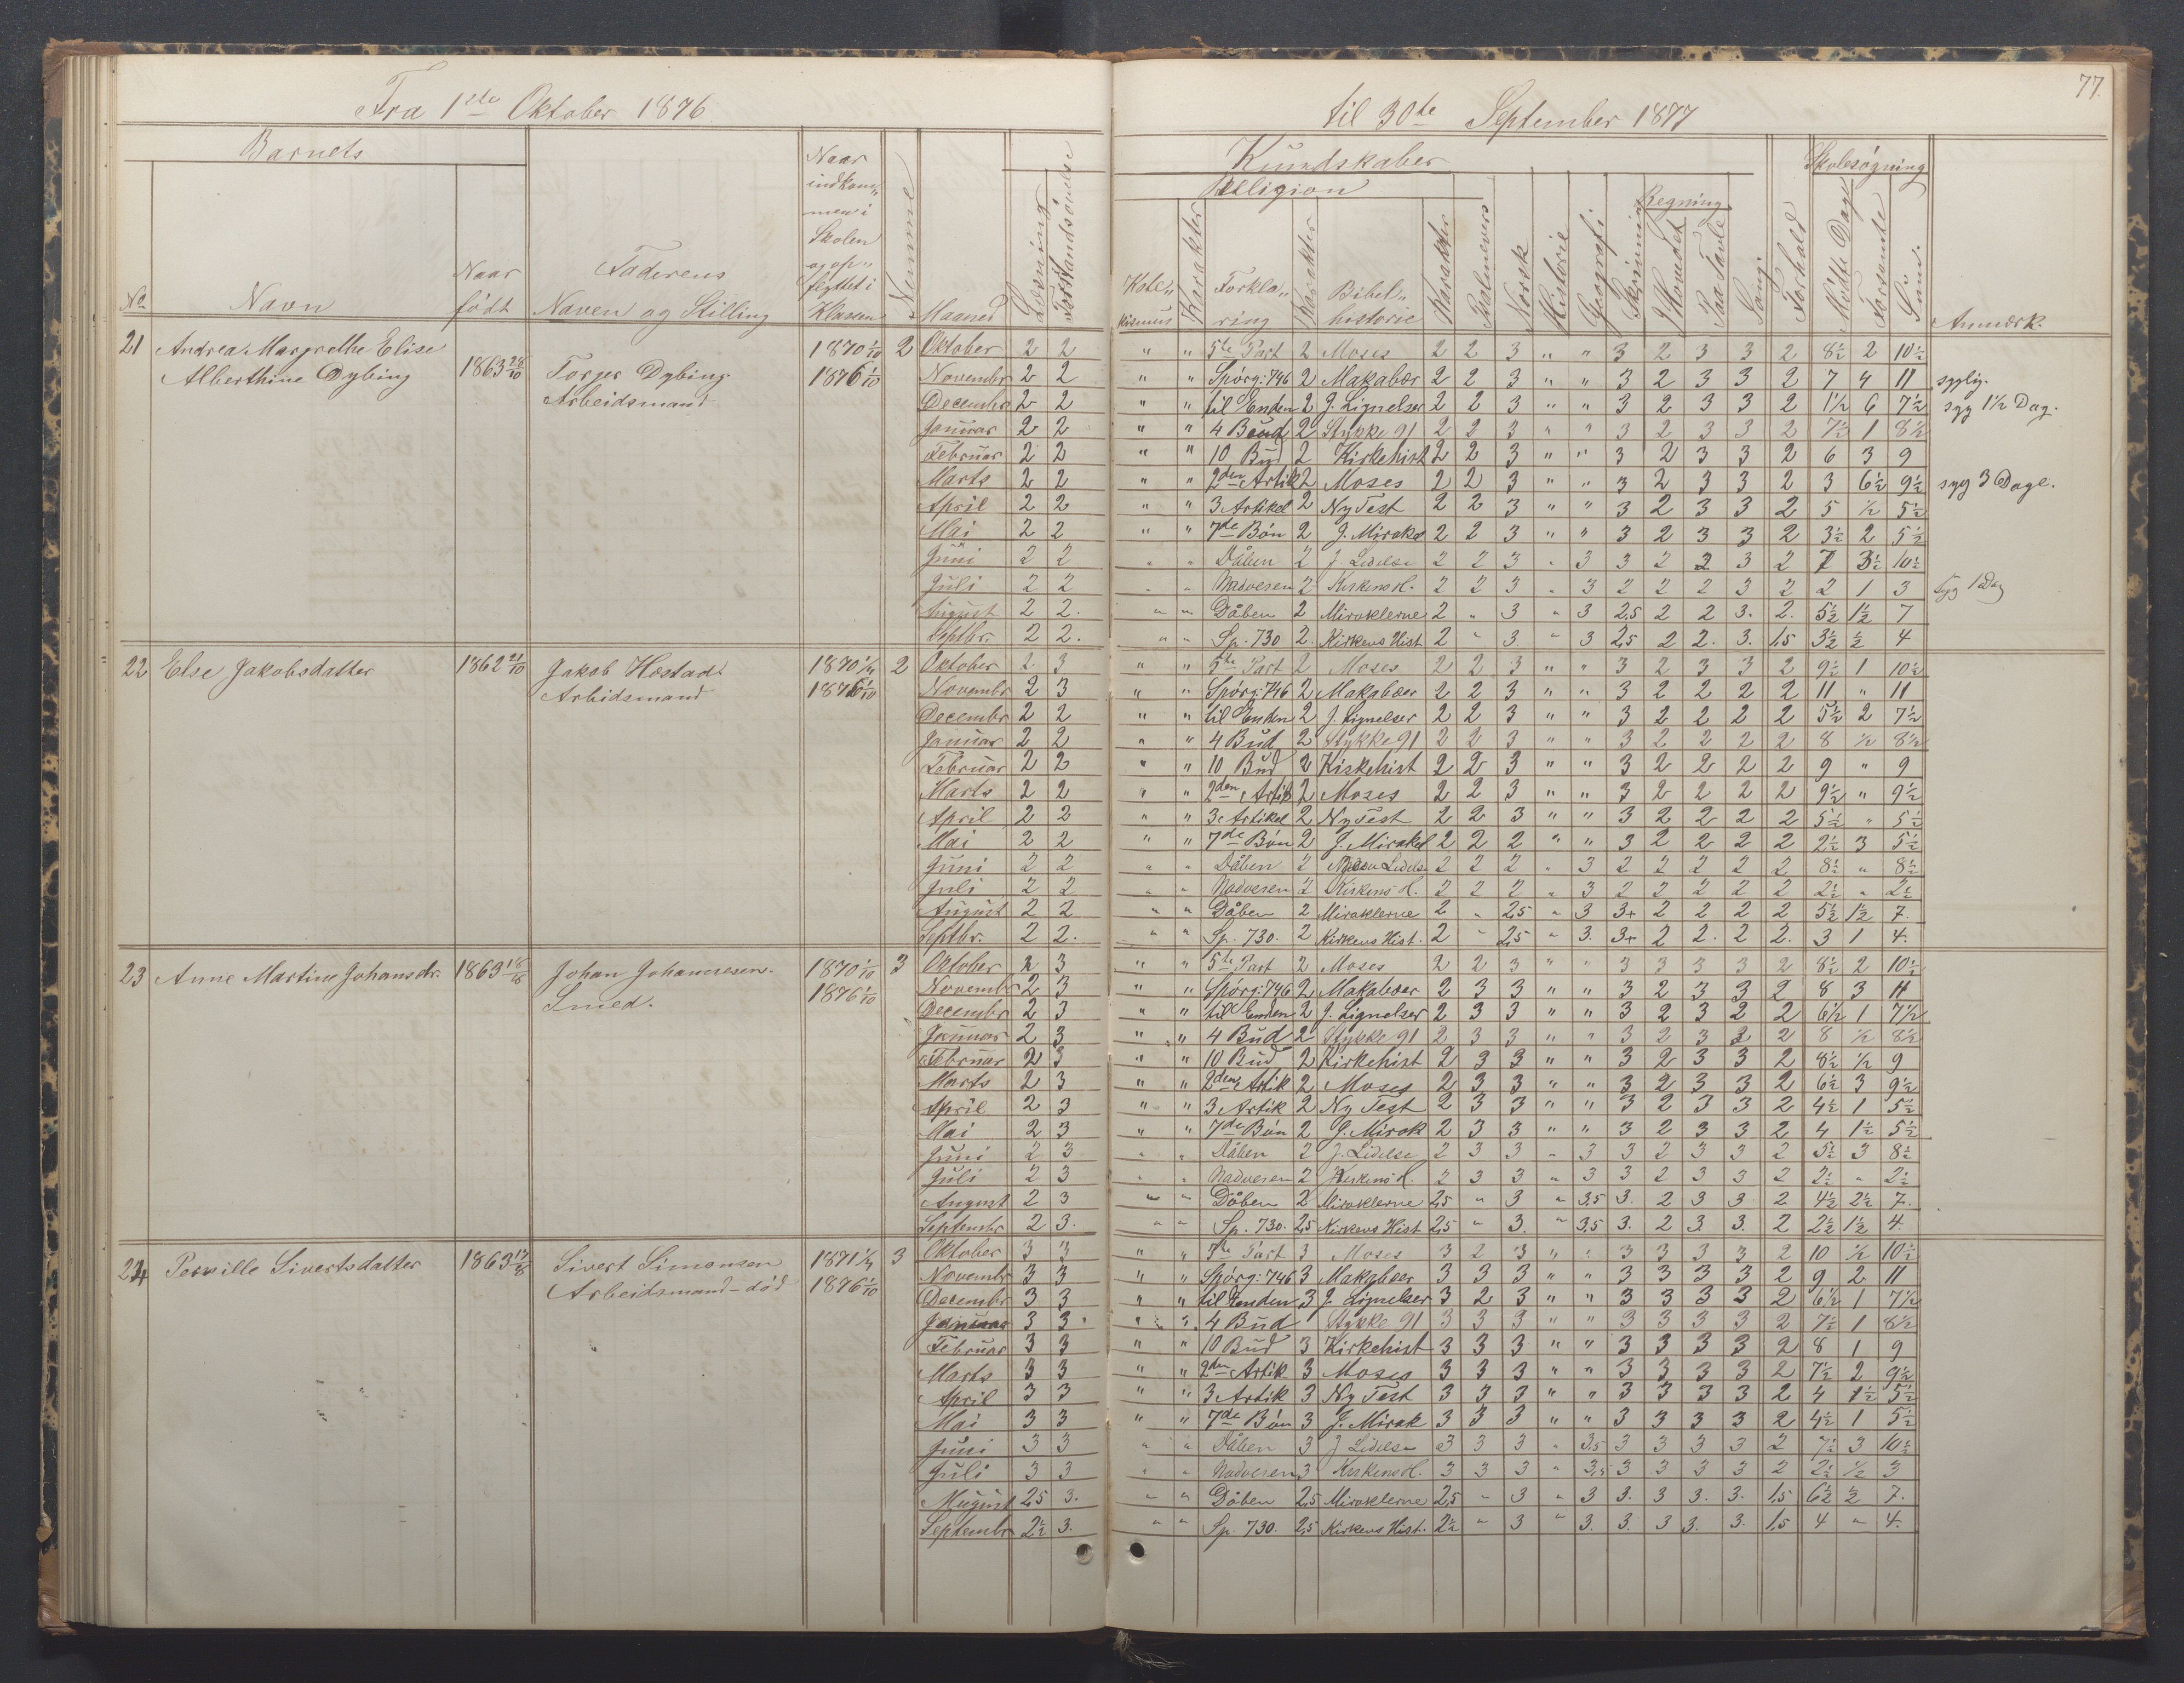 77.
Fra 1ste Oktober 1876. til 30te September 1877
Barnets Kundskaber Skolesøgning
Religion Regning
No Navn Naar født Faderens Naven og Stilling Naar indkommen i Skolen og opflyttet i Klassen Nemme Maaned Læsning Forstandsøvelse Katekismus Karakter Forklaring Karakter Bibelhistorie Karakter Salmevers Norsk Historie Geografi Skrivning I Hovedet Paa Tavle Sang Forhold Mødte Dage Forsømte Sum. Anmerk.
21 Andrea Margrethe Elise 1870 1/10 2 Oktober 2 2 " " 5te Part 2 Moses 2 2 3 " " 3 2 3 3 2 8½ 2 10½
Alberthine Dybing 1863 28/10 Torger Dybing 1876 1/10 Novembr 2 2 " " Spørg: 746 2 Makabær 2 2 3 " " 3 2 3 3 2 7 4 11 syglig.
Arbeidsmand Decembr 2 2 " " til Enden 2 J. Lignelser 2 2 3 " " 3 2 3 3 2 1½ 6 7½ syg 1½ Dag.
Januar 2 2 " " 4 Bud 2 Stykke 91 2 2 3 " " 3 2 3 3 2 7½ 1 8½
Februar 2 2 " " 10 Bud 2 Kirkehist 2 2 3 " " 3 2 3 3 2 6 3 9
Marts 2 2 " " 2den Artik 2 Moses 2 2 3 " " 3 2 3 3 2 3 6½ 9½ syg 3 Dage.
April 2 2 " " 3 Artikel 2 Ny Test 2 2 3 " " 3 2 3 3 2 5 ½ 5½
Mai 2 2 " " 7de Bøn 2 J. Mirakel 2 2 3 " " 3 2 3 3 2 3½ 2 5½
Juni 2 2 " " Dåben 2 J. Lidelse 2 2 3 " 3 3 2 2 3 2 7 3½ 10½
Juli 2 2 " " Nadveren 2 Kirkens H. 2 2 3 " 3 2 2 2 3 2 2 1 3 Syg 1 Dag
August 2 2. " " Dåben 2 Miraklerne 2 " 3 " 3 2,5 2 2 3. 2. 5½ 1½ 7
Septbr. 2 2. " " Sp. 730 2. Kirkens Hist 2 " 3. " 3 2,5 2 2. 3. 1,5 3½ ½ 4
22 Else Jakobsdatter 1862 21/10 Jakob Hostad. 1870 1/4 2 Oktober 2 3 " " 5te Part 2 Moses 2 2 3 " " 3 2 3 3 2 9½ 1 10½
Arbidsmand 1876 1/10 Novembr 2 3 " " Spørg: 746 2 Makabæer 2 2 3 " " 3 2 2 2 2 11 " 11
Decembr 2 2 " " til Enden 2 J. Lignelser 2 2 3 " " 3 2 2 2 2 5½ 2 7½
Januar 2 2 " " 4 Bud 2 Stykke 91 2 2 3 " " 3 2 2 2 2 8 ½ 8½
Februar 2 2 " " 10 Bud 2 Kirkehist 2 2 3 " " 3 2 2 2 2 9 " 9
Marts 2 2 " " 2den Artik 2 Moses 2 2 3 " " 3 2 2 2 2 9½ " 9½
April 2 2 " " 3 Artikel 2 Ny Test 2 2 3 " " 3 2 2 2 2 5½ " 5½
Mai 2 2 " " 7de Bøn 2 J. Mirakel 2 2 2 " " 3 2 2 2 2 2½ 3 5½
Juni 2 2 " " Dåben 2 Lidels 2 2 2 " 3 2 2 2 2 2 8½ " 8½
Juli 2 2 " " Nadveren 2 Kirkens H. 2 2 2 " 3 2 2 2 2 2 2½ " 2½
August 2 2 " " Dåben 2 Miraklerne 2 " 2,5 " 3 3+ 2 2 2 2 5½ 1½ 7.
Septbr. 2 2. " " Sp. 730. 2 Kirkens Hist. 2 " 2,5 " 3. 3+ 2 2. 2 2. 3 1 4.
23 Anne Martine Johansdr. 1863 18/8 Johan Johannesen. 1870 1/10 3 Oktober 2 3 " " 5te Part 2 Moses 2 2 3 " " 3 3 3 3 2 8½ 2 10½
Smed. 1876 1/10 Novembr 2 3 " " Spørg: 746 2 Makabæer 2 3 3 " " 3 2 3 3 2 8 3 11
Decembr 2 3 " " til Enden 2 J. Lignelser 2 3 3 " " 3 2 3 2 2 6½ 1 7½
Januar 2 3 " " 4 Bud 2 Stykke 91 2 3 3 " " 3 2 3 3 2 8 ½ 8½
Februar 2 3 " " 10 Bud 2 Kirkehist 2 3 3 " " 3 2 3 3 2 8½ ½ 9
Marts 2 3 " " 2den Artik 2 Moses 2 3 3 " " 3 2 3 3 2 6½ 3 9½
April 2 3 " " 3 Artik 2 Ny Test 2 3 3 " " 3 2 3 3 2 4½ 1 5½
Mai 2 3 " " 7de Bøn 2 J. Mirak 2 3 3 " " 3 2 3 3 2 4 1½ 5½
Juni 2 3 " " Dåben 2 J. Lidelse 2 3 3 " 3 3 2 3 3 2 5½ 3 8½
Juli 2 3 " " Nadveren 2 Kirkens H. 2 3 3 " 3 3 2 3 3 2 2½ " 2½
August 2 3 " " Dåben 2 Miraklerne 2,5 " 3 " 3,5 3. 2 3 3 2 4½ 2½ 7.
Septembr 2 3. " " Sp. 730. 2,5 Kirkens Hist 2,5 " 3. " 3,5 3. 2 3 3. 2 2½ 1½ 4.
24 Pernille Sivertsdatter 1863 17/8 Sivert Simonsen 1871 1/4 3 Oktober 3 3 " " 5te Part 3 Moses 3 2 3 " " 3 3 3 3 2 10 ½ 10½
Arbeidsmand - død 1876 1/10 Novembr 3 3 " " Spørg: 746 3 Makabæer 3 3 3 " " 3 3 3 3 2 9 2 11
Decembr 3 3 " " til Enden 3 J. Lignelser 3 2 3 " " 3 3 3 3 2 6½ 1 7½
Januar 3 3 " " 4 Bud Stykke 91 3 3 3 " " 3 3 3 3 2 7½ 1 8½
Februar 3 3 " " 10 Bud 3 Kirkehist 3 3 3 " " 3 3 3 3 2 8 1 9
Marts 3 3 " " 2den Artik 3 Moses 3 3 3 " " 3 3 3 3 2 7½ 2 9½
April 3 3 " " 3 Artik 3 Ny Test 3 3 3 " " 3 3 3 3 2 4 1½ 5½
Mai 3 3 " " 7de Bøn 3 J. Mirak 3 3 3 " " 3 3 3 3 2 4½ 1 5½
Juni 3 3 " " Dåben 3 J Lidelse 3 3 3 " 3,5 3 3 3 3 2 7½ 3 10½
Juli 3 3 " " Nadveren 3 Kirkens H. 3 3 3 " 3,5 3 3 3 3 2 2½ ½ 3
August 2,5 3. " " Dåben 2,5 Miraklerne 2,5 " 3 " 3 3. 3 3. 3. 1,5 6½ ½ 7.
Septembr 2½ 3. " " Sp. 730. 2,5 Kirkens Hist. 2½ " 3 " 3. 3. 3 3. 3. 1,5 4 " 4.